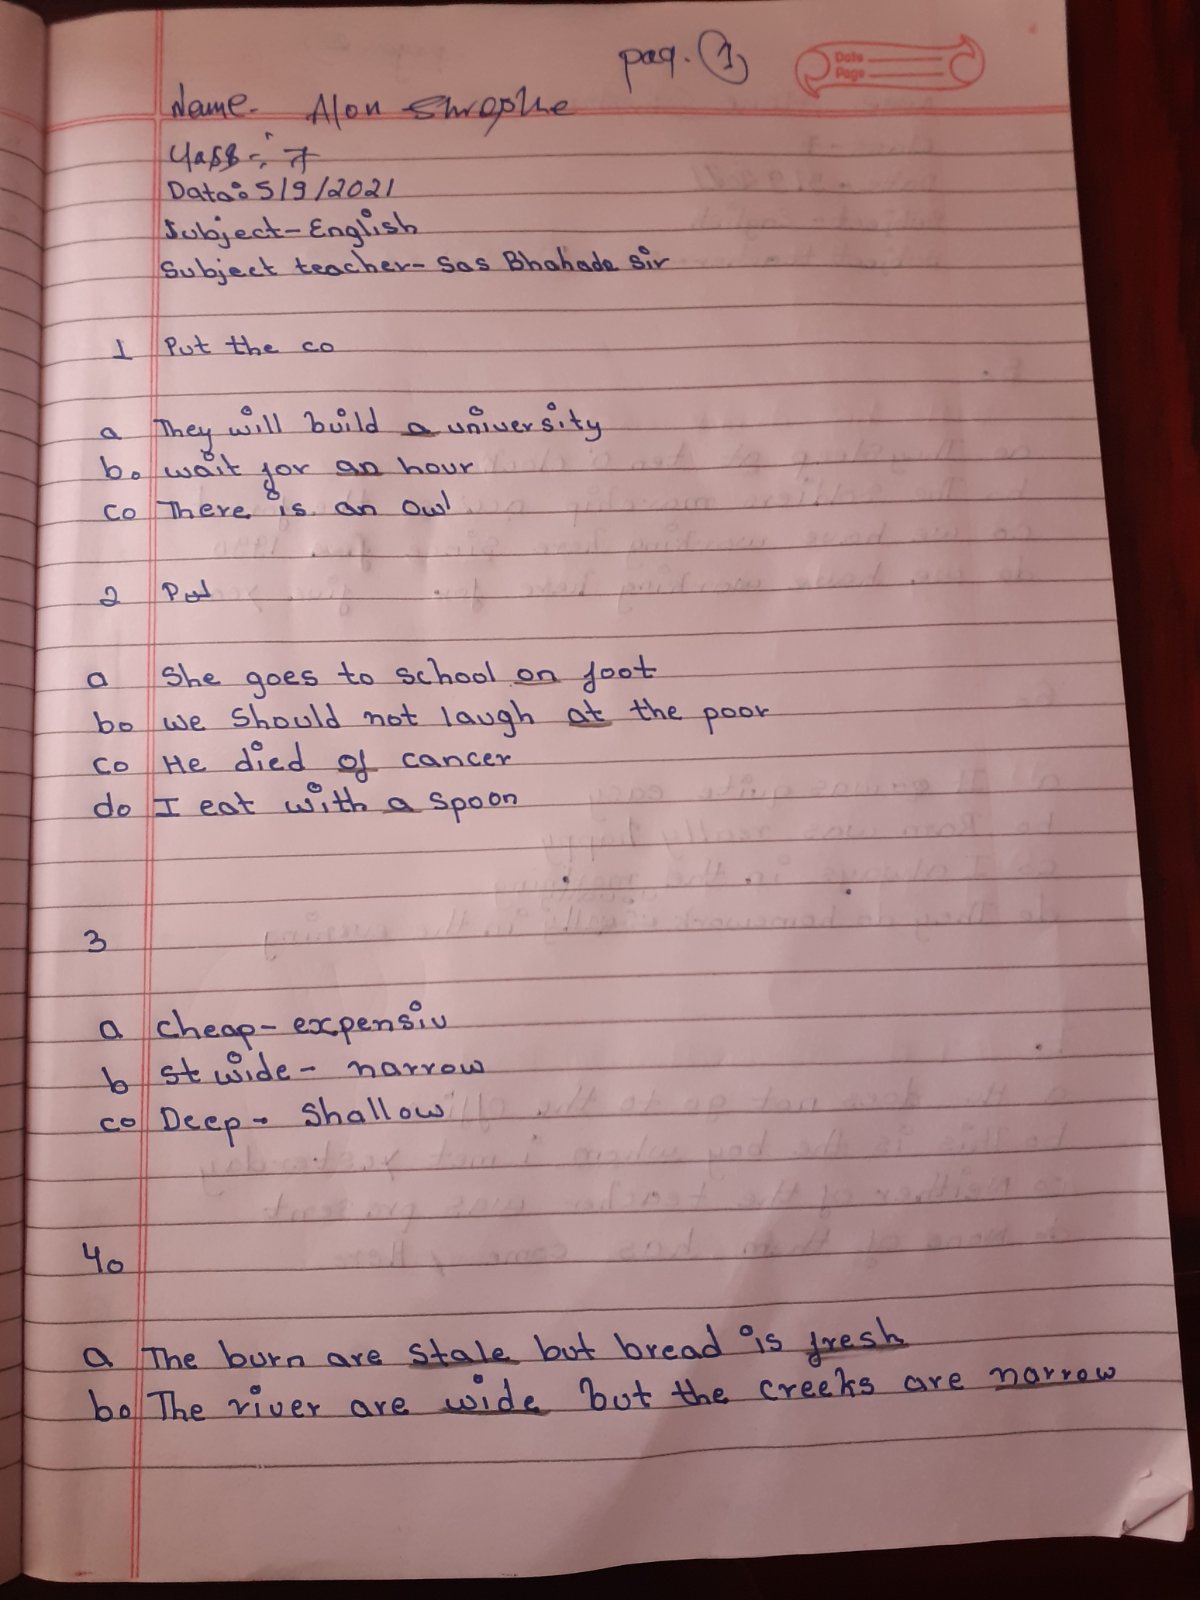 pag. 1
Date
Page
Name. Alon
Class-: 7
Data: 5/9/2021
Subject-English
Subject teacher- Sas Bhahada Sir
1 Put the co
a They will build a university
b. wait for an hour
c. There is an owl
2 Put
a She goes to school on foot
b. we should not laugh at the poor
c. He died of cancer
d. I eat with a spoon
3
a cheap- expensiv
b st wide- narrow
c. Deep- Shallow
4.
a The burn are stale but bread is fresh
b. The river are wide but the creeks are narrow